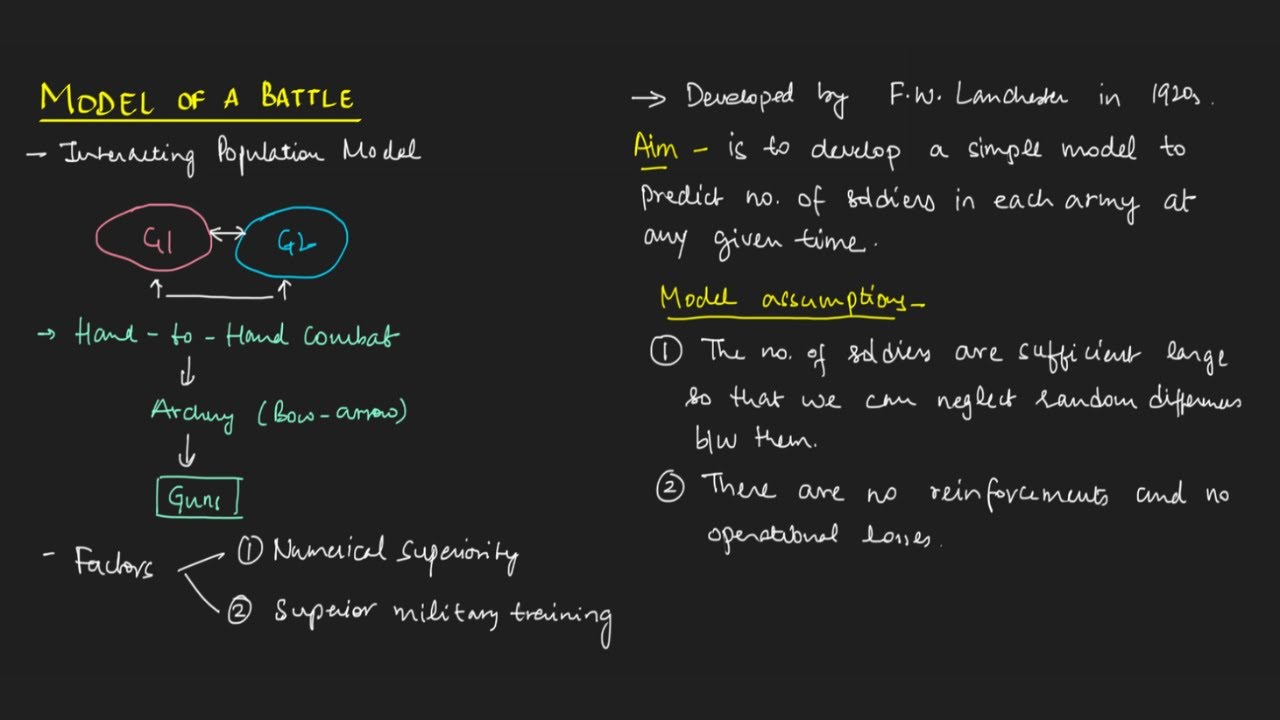 MODEL OF A BATTLE
- Interacting Population Model
G1
G2
→ Hand-to-Hand Combat
Archery (Bow-arrow)
Guns
- Factors
① Numerical Superiority
② Superior military training
→ Developed by F.W. Lanchester in 1920s.
Aim - is to develop a simple model to
predict no. of soldiers in each army at
any given time.
Model assumptions-
① The no. of soldiers are sufficient large
so that we can neglect random differences
b/w them.
② There are no reinforcements and no
operational losses.